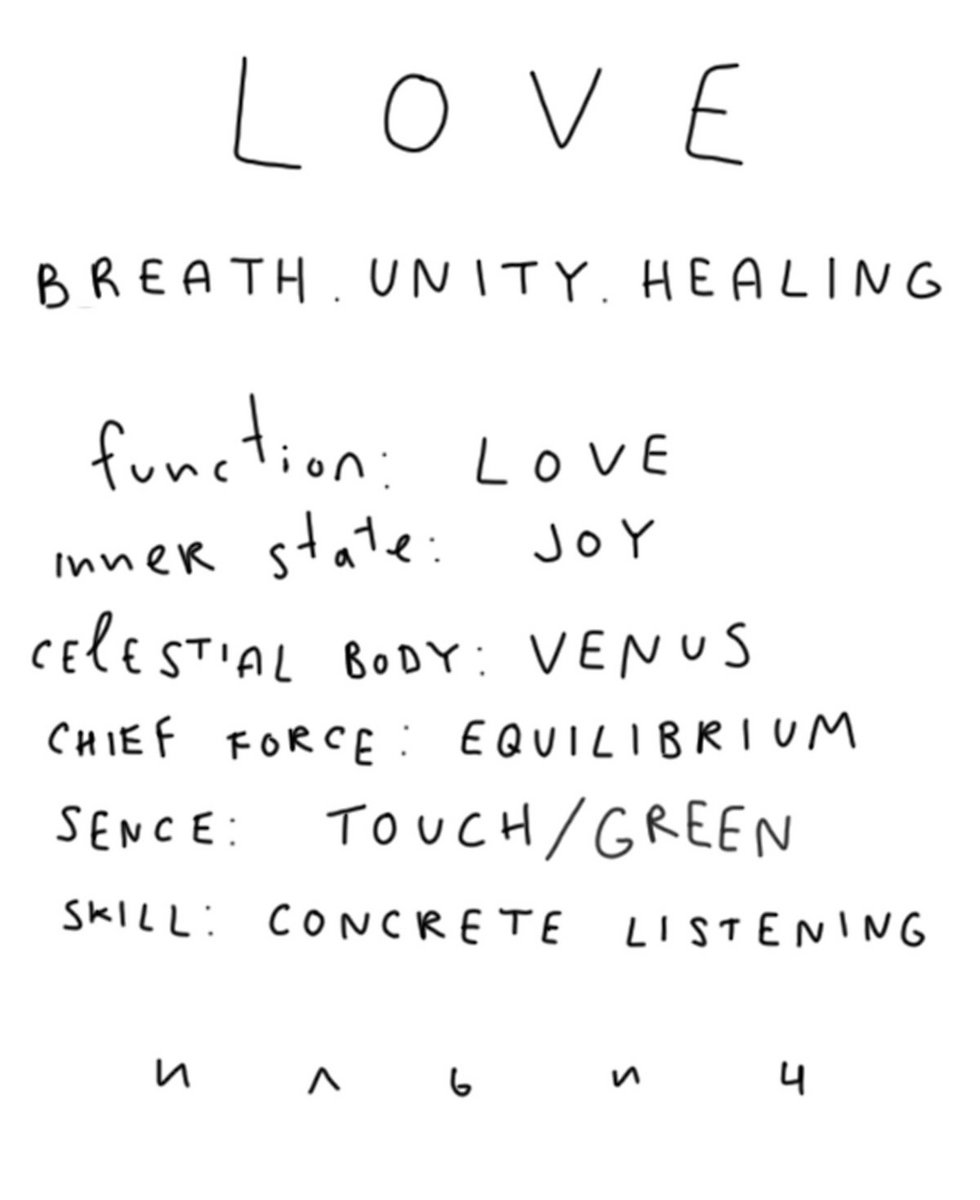 LOVE
BREATH. UNITY. HEALING
function: LOVE
INNER state: JOY
CELESTIAL BODY: VENUS
CHIEF FORCE: EQUILIBRIUM
SENCE: TOUCH/GREEN
SKILL: CONCRETE LISTENING